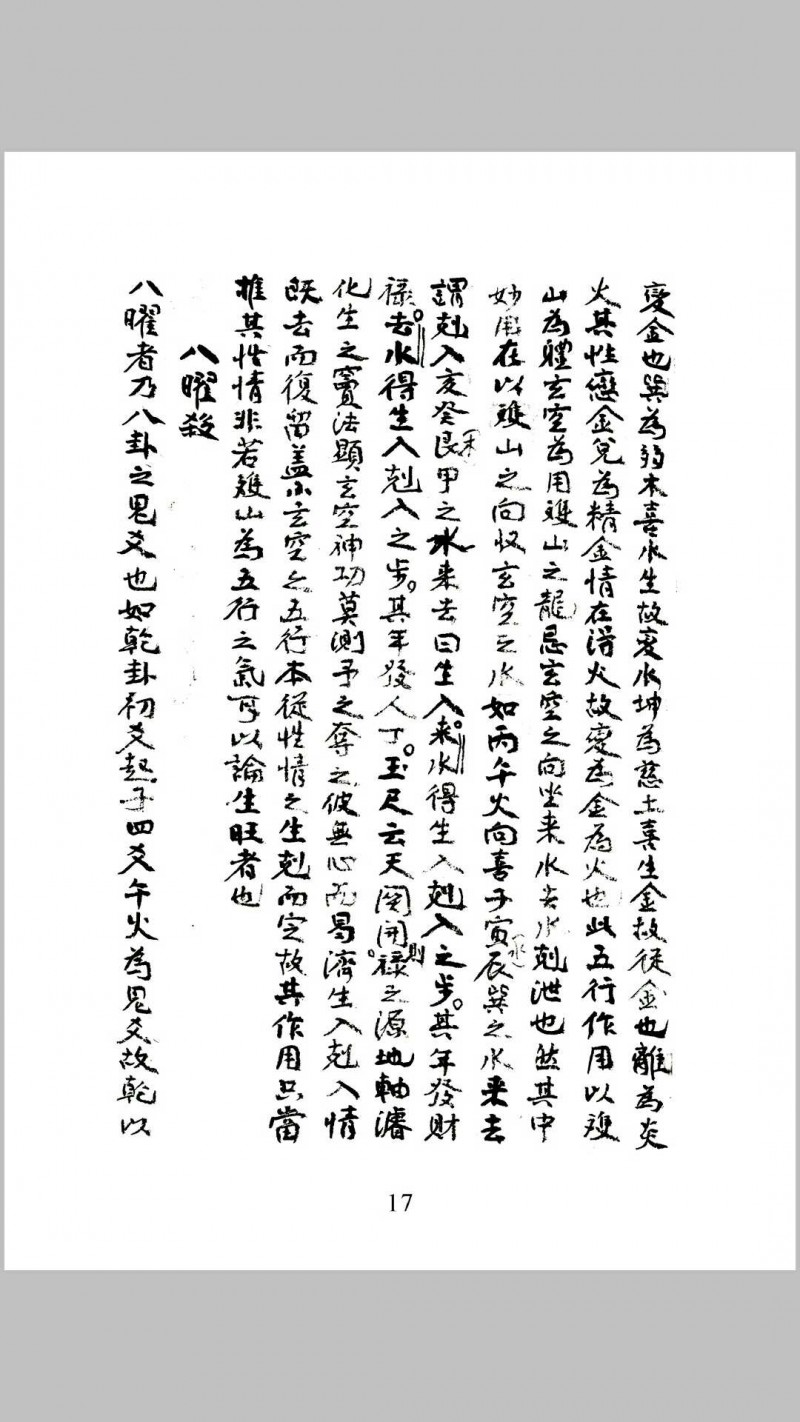 變金也巽為弱木喜水生故變水坤為慈土喜生金故從金也離為炎
火其性戀金兌為精金情在得火故變為金為火也此五行作用以雙
山為體玄空為用雙山之龍忌玄空之向坐來水去水剋泄也然其中
妙用在以雙山之向收玄空之水如丙午火向喜子寅辰巽之水來去
謂剋入亥癸艮甲之水來去曰生入。來水得生入剋入之步。其年發財
祿。去水得生入剋入之步。其年發人丁。玉尺云天關開。則祿之源地軸濬
化生之竇法顯玄空神功莫測予之奪之彼無心而曷濟生入剋入情
既去而復留盖小玄空之五行本從性情之生剋而定故其作用只當
推其性情非若雙山為五行之氣可以論生旺者也
八曜殺
八曜者乃八卦之鬼爻也如乾卦初爻起子四爻午火為鬼爻故乾以
17